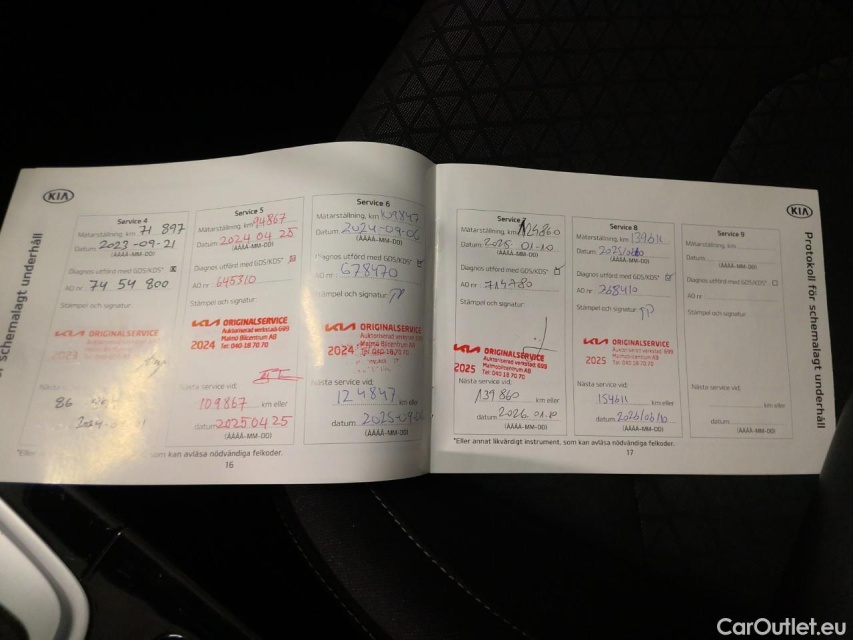 KIA
Protokoll för schemalagt underhåll
Service 4
Mätarställning, km 71 897
Datum 2023-09-21
(ÅÅÅÅ-MM-DD)
Diagnos utförd med GDS/KDS*
AO nr 74 54 800
Stämpel och signatur:
KIA ORIGINALSERVICE
Auktoriserad verkstad
2023
Nästa service vid:
86
Service 5
Mätarställning, km 94867
Datum 2024 04 25
(ÅÅÅÅ-MM-DD)
Diagnos utförd med GDS/KDS*
AO nr 645310
Stämpel och signatur:
KIA ORIGINALSERVICE
Auktoriserad verkstad 699
Malmö Bilcentrum AB
2024 Tel: 040-18 70 70
Nästa service vid:
109867 km eller
datum 20250425
(ÅÅÅÅ-MM-DD)
Service 6
Mätarställning, km 109847
Datum 2024-09-06
(ÅÅÅÅ-MM-DD)
Diagnos utförd med GDS/KDS*
AO nr 678470
Stämpel och signatur:
KIA ORIGINALSERVICE
Auktoriserad verkstad 699
Malmö Bilcentrum AB
2024 Tel: 040-18 70 70
Nästa service vid:
124847 km eller
datum 2025-09-06
(ÅÅÅÅ-MM-DD)
*Eller annat likvärdigt instrument, som kan avläsa nödvändiga felkoder.
16
KIA
Protokoll för schemalagt underhåll
Service 7
Mätarställning, km 124860
Datum 2025 01-10
(ÅÅÅÅ-MM-DD)
Diagnos utförd med GDS/KDS*
AO nr 714780
Stämpel och signatur:
KIA ORIGINALSERVICE
Auktoriserad verkstad 699
Malmöbilcentrum AB
2025 Tel: 040 18 70 70
Nästa service vid:
139860 km eller
datum 2026 01-10
(ÅÅÅÅ-MM-DD)
Service 8
Mätarställning, km 139611
Datum 2025/06/10
(ÅÅÅÅ-MM-DD)
Diagnos utförd med GDS/KDS*
AO nr 768410
Stämpel och signatur:
KIA ORIGINALSERVICE
Auktoriserad verkstad 699
Malmöbilcentrum AB
2025 Tel: 040 18 70 70
Nästa service vid:
154611 km eller
datum 2026/06/10
(ÅÅÅÅ-MM-DD)
Service 9
Mätarställning, km
Datum
(ÅÅÅÅ-MM-DD)
Diagnos utförd med GDS/KDS*
AO nr
Stämpel och signatur:
Nästa service vid:
km eller
datum
(ÅÅÅÅ-MM-DD)
*Eller annat likvärdigt instrument, som kan avläsa nödvändiga felkoder.
17
CarOutlet.eu